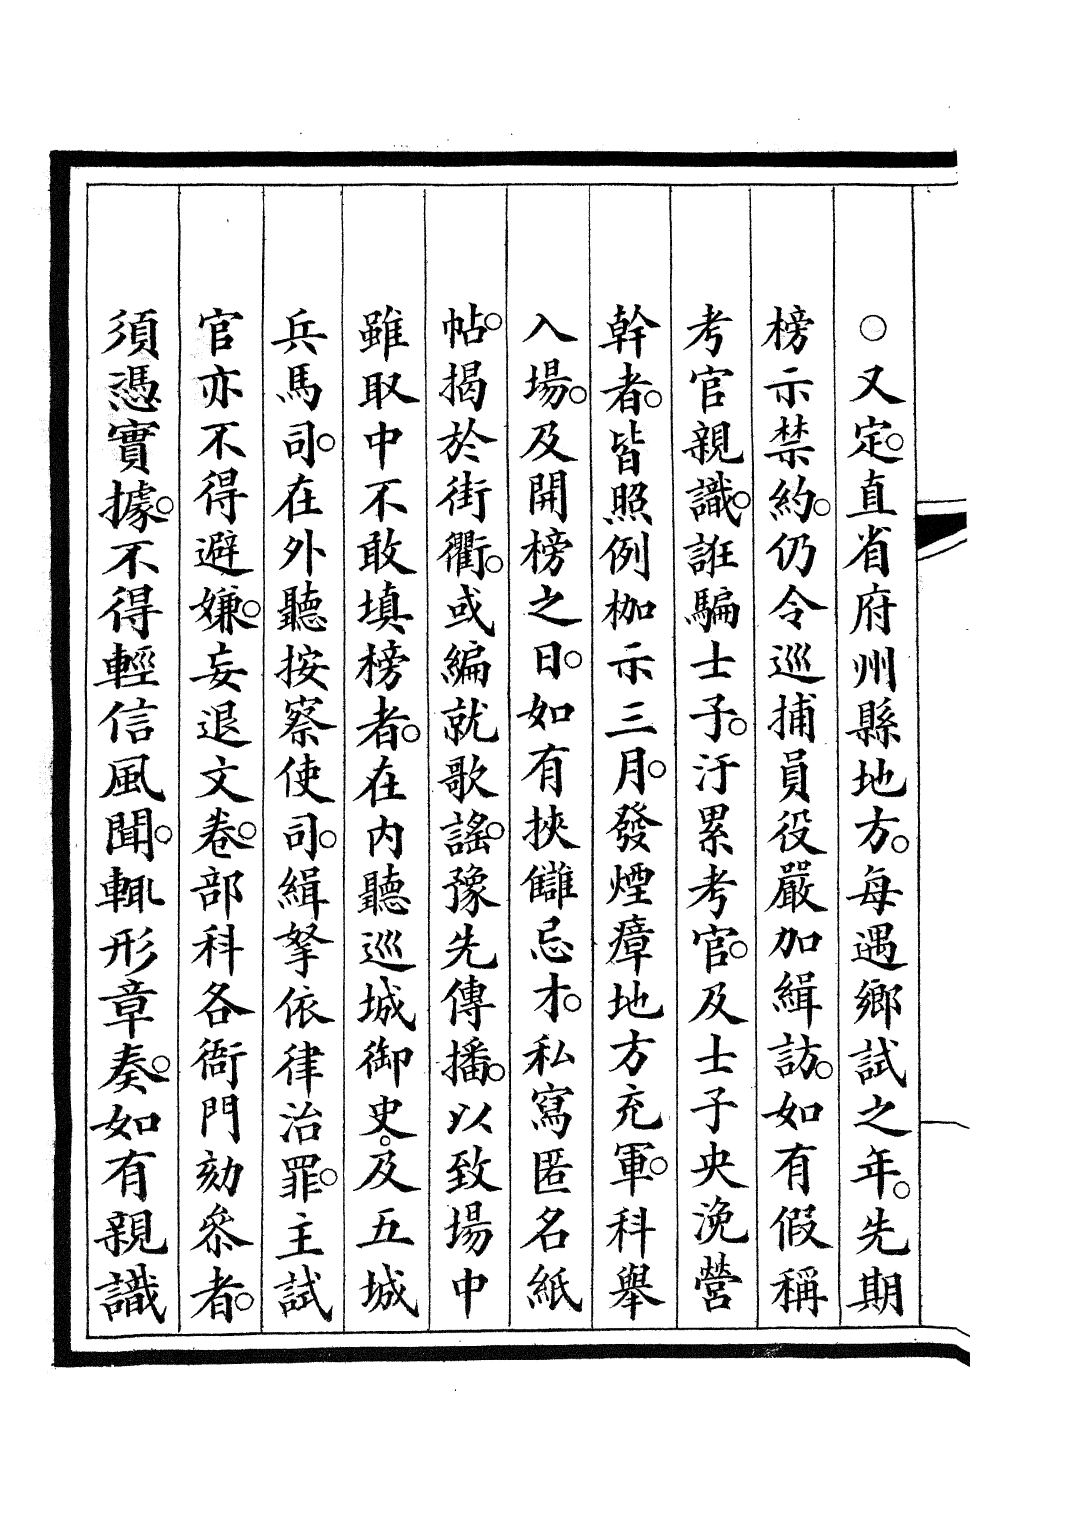 ○又定。直省府州縣地方。每遇鄉試之年。先期
榜示禁約。仍令巡捕員役嚴加緝訪。如有假稱
考官親識。誑騙士子。汙累考官。及士子央浼營
幹者。皆照例枷示三月。發煙瘴地方充軍。科舉
入場。及開榜之日。如有挾讎忌才。私寫匿名紙
帖。揭於街衢。或編就歌謠。豫先傳播。以致場中
雖取中不敢填榜者。在內聽巡城御史。及五城
兵馬司。在外聽按察使司。緝拏依律治罪。主試
官亦不得避嫌。妄退文卷。部科各衙門劾參者。
須憑實據。不得輕信風聞。輒形章奏。如有親識